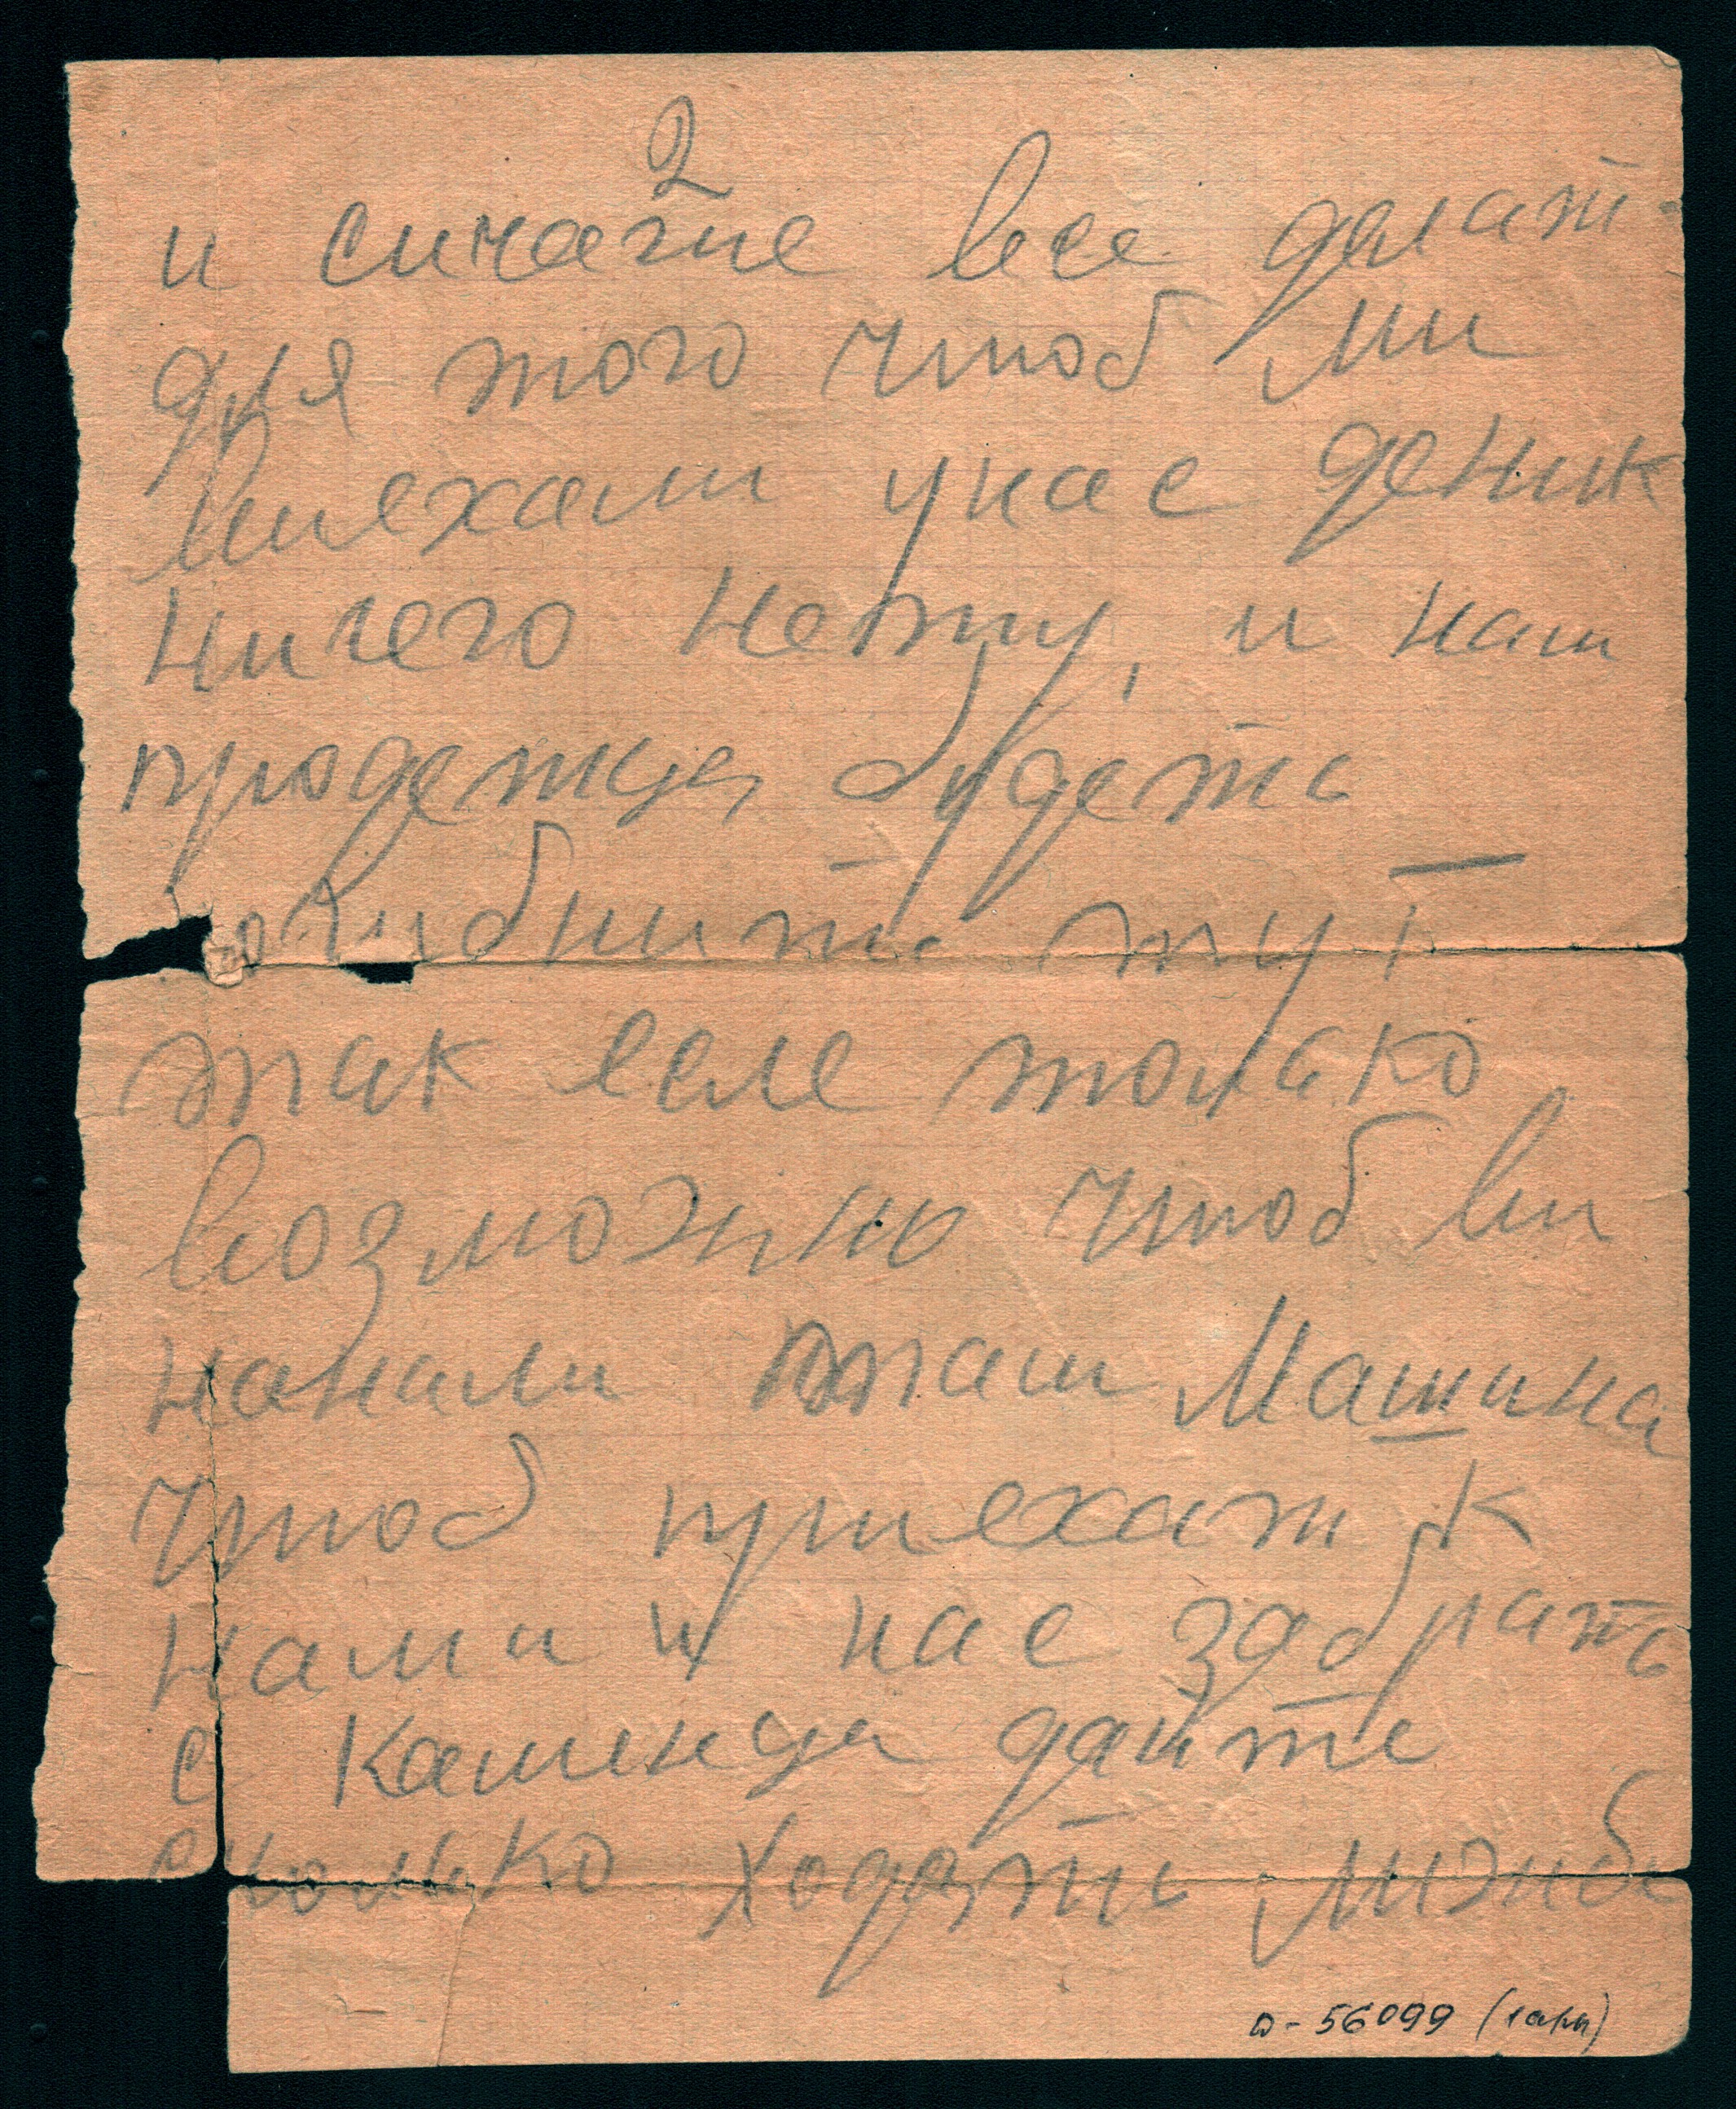 2
и сичасте все делат
для того чтоб ми
виехали у нас деник
ничего нету, и нам
продетца будете
погибните тут
так есле только
возможно чтоб ви
наняли там машина
чтоб приехат к
нами и нас забрать
с Каменца дайте
сколько ходате
D-56099 (1арк)